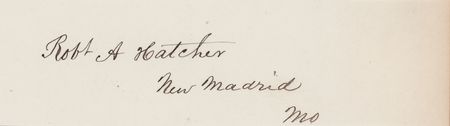 Robt A Hatcher
New Madrid
Mo